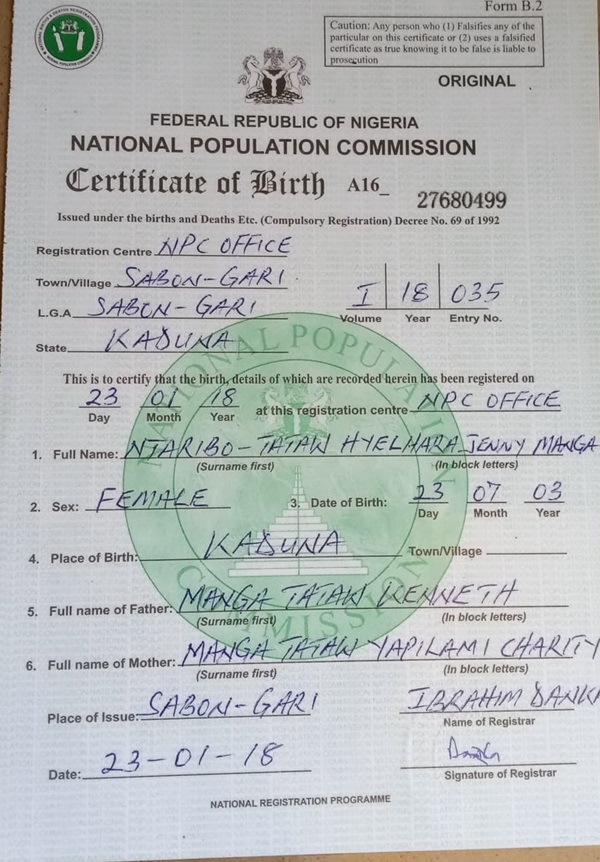 Form B.2
Caution: Any person who (1) Falsifies any of the
particular on this certificate or (2) uses a falsified
certificate as true knowing it to be false is liable to
prosecution
ORIGINAL
FEDERAL REPUBLIC OF NIGERIA
NATIONAL POPULATION COMMISSION
Certificate of Birth A16_ 27680499
Issued under the births and Deaths Etc. (Compulsory Registration) Decree No. 69 of 1992
Registration Centre NPC OFFICE
Town/Village SABON-GARI
L.G.A SABON-GARI
I 18 035
Volume Year Entry No.
State KADUNA
This is to certify that the birth, details of which are recorded herein has been registered on
23 01 18 at this registration centre NPC OFFICE
Day Month Year
1. Full Name: NTARIBO-TATAW HYELHARA JENNY MANGA
(Surname first) (In block letters)
2. Sex: FEMALE 3. Date of Birth: 23 07 03
Day Month Year
4. Place of Birth: KADUNA Town/Village
5. Full name of Father: MANGA TATAW KENNETH
(Surname first) (In block letters)
6. Full name of Mother: MANGA TATAW YAPILAMI CHARITY
(Surname first) (In block letters)
Place of Issue: SABON-GARI IBRAHIM DANK
Name of Registrar
Date: 23-01-18
Signature of Registrar
NATIONAL REGISTRATION PROGRAMME
NATIONAL POPULATION COMMISSION